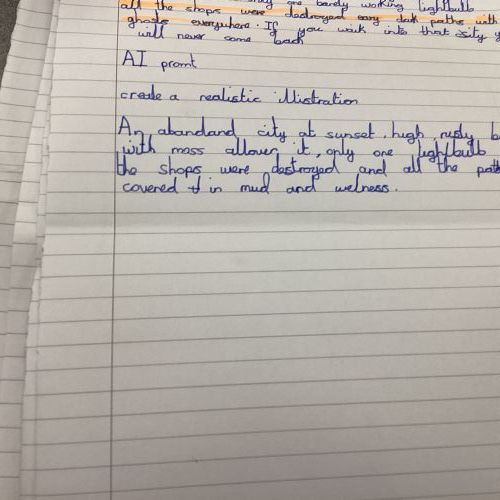 one barely working lightbulb
all the shops were destroyed eany dark paths with
ghosts everywhere. If you walk into that city y
will never come back
AI promt
create a realistic illistration
An abandand city at sunset, high, rusty b
with moss allover it, only one lightbulb
the shops were destroyed and all the path
covered in mud and welness.